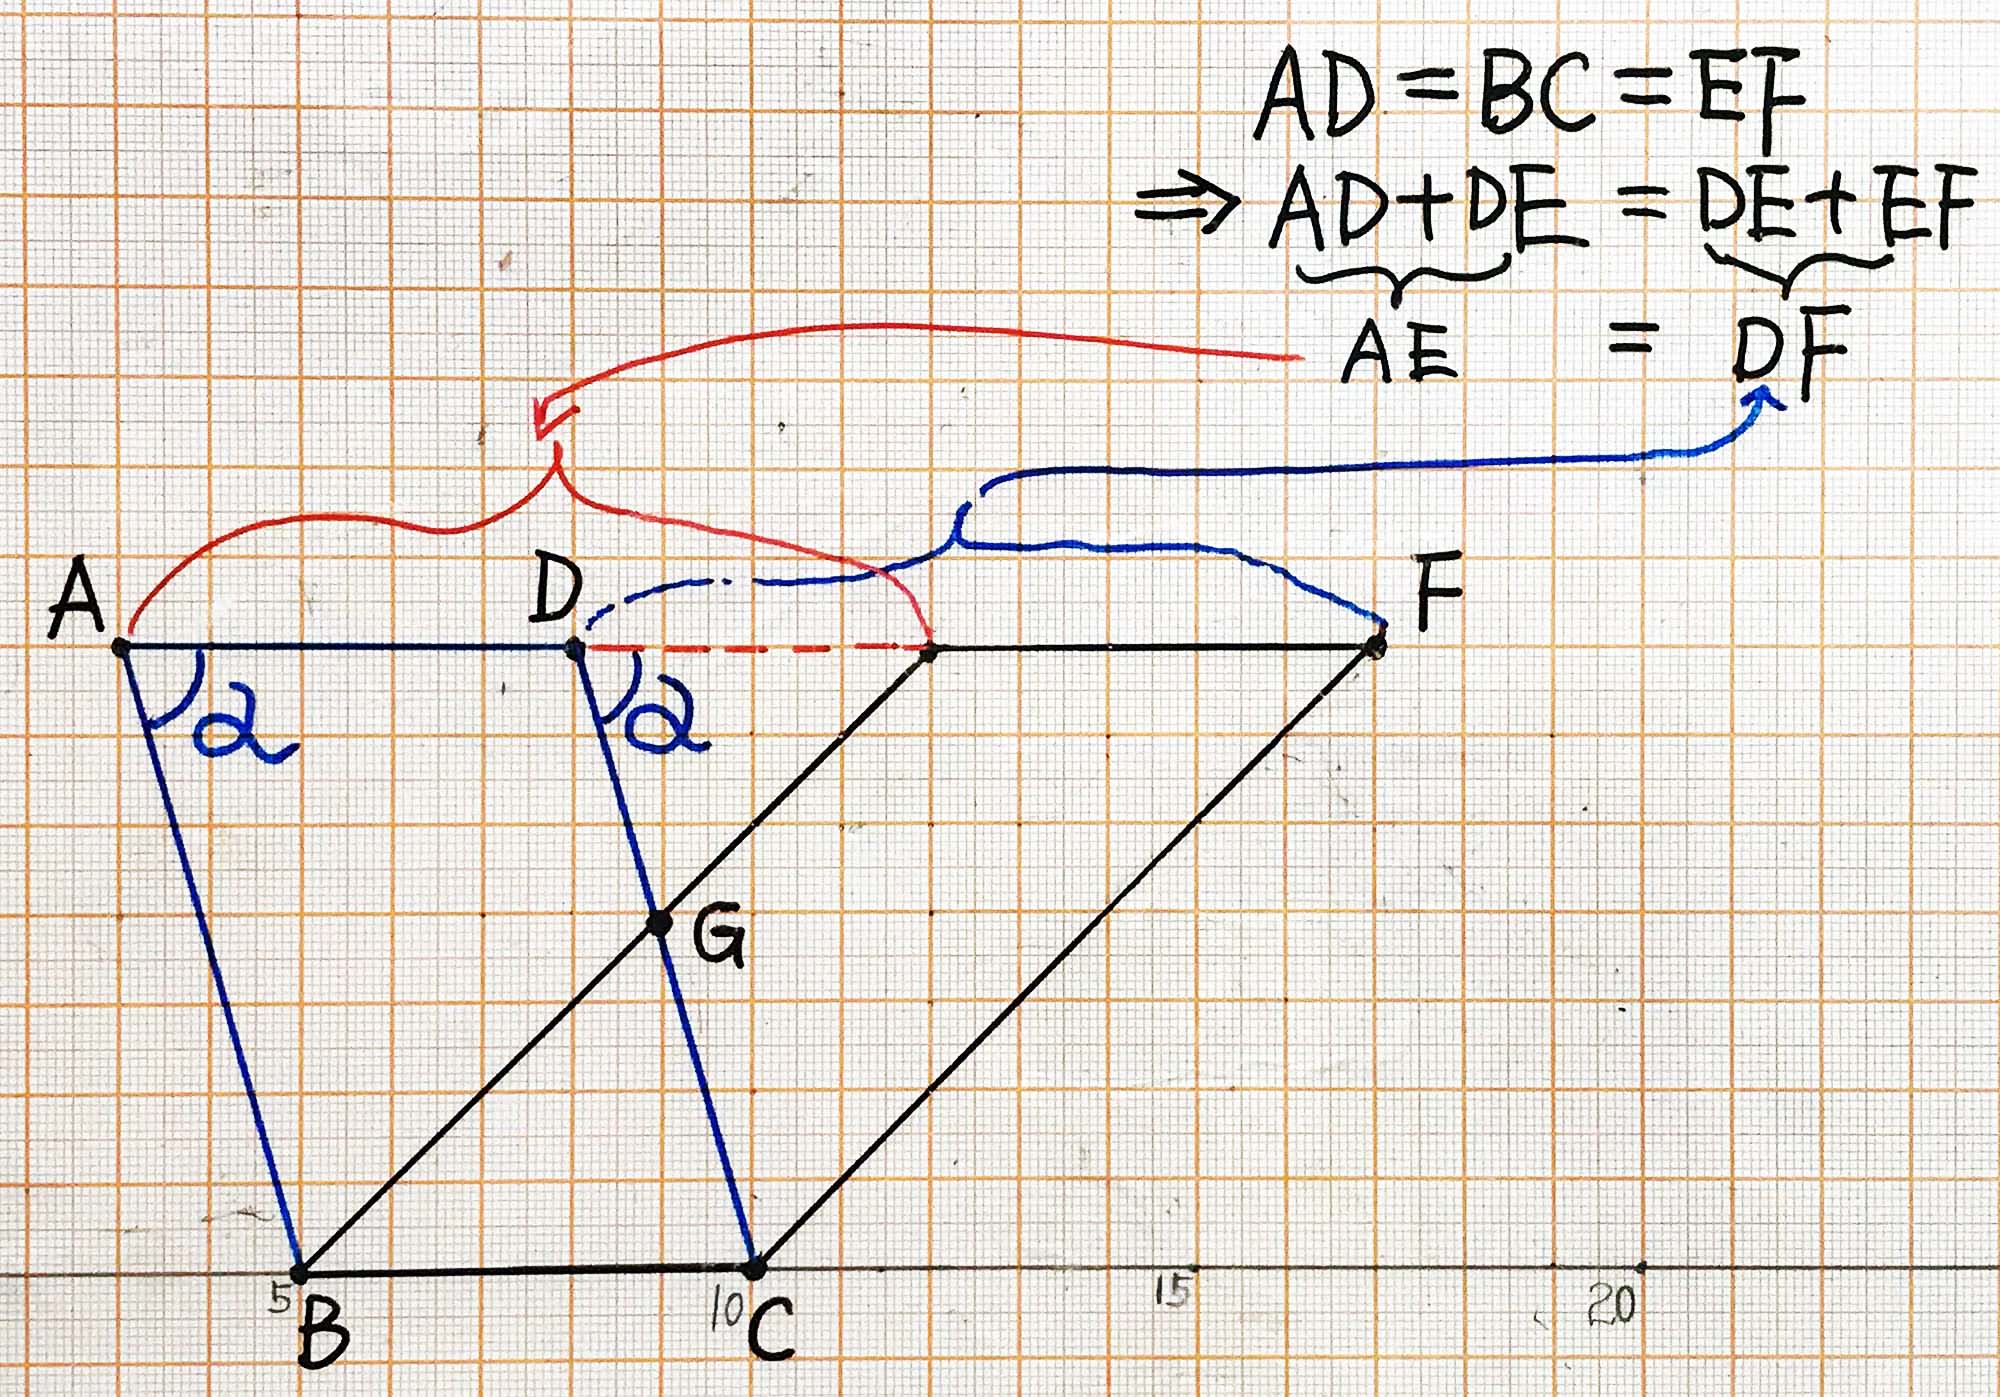 AD = BC = EF
⇒ AD + DE = DE + EF
AE = DF
A D F
α α
G
5 10 15 20
B C